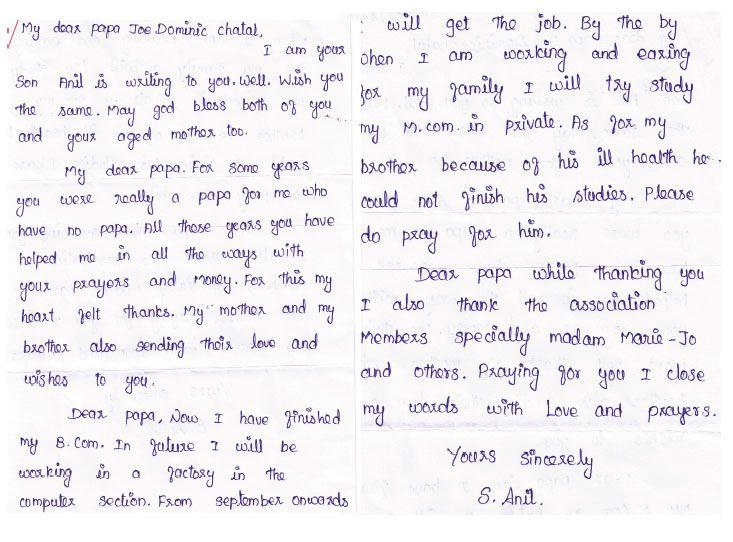 My dear papa Joe Dominic chatal,
I am your
Son Anil is writing to you. well. Wish you
the same. May god bless both of you
and your aged mother too.
My dear papa. For some years
you were really a papa for me who
have no papa. All these years you have
helped me in all the ways with
your prayers and money. For this my
heart felt thanks. My mother and my
brother also sending their love and
wishes to you.
Dear papa, Now I have finished
my B. Com. In future I will be
working in a factory in the
computer section. From september onwards
will get the job. By the by
ohen I am working and earing
for my family I will try study
my M.com. in private. As for my
brother because of his ill health he
could not finish his studies. Please
do pray for him.
Dear papa while thanking you
I also thank the association
Members specially madam Marie-Jo
and others. Praying for you I close
my words with Love and prayers.
Yours sincerely
S. Anil.